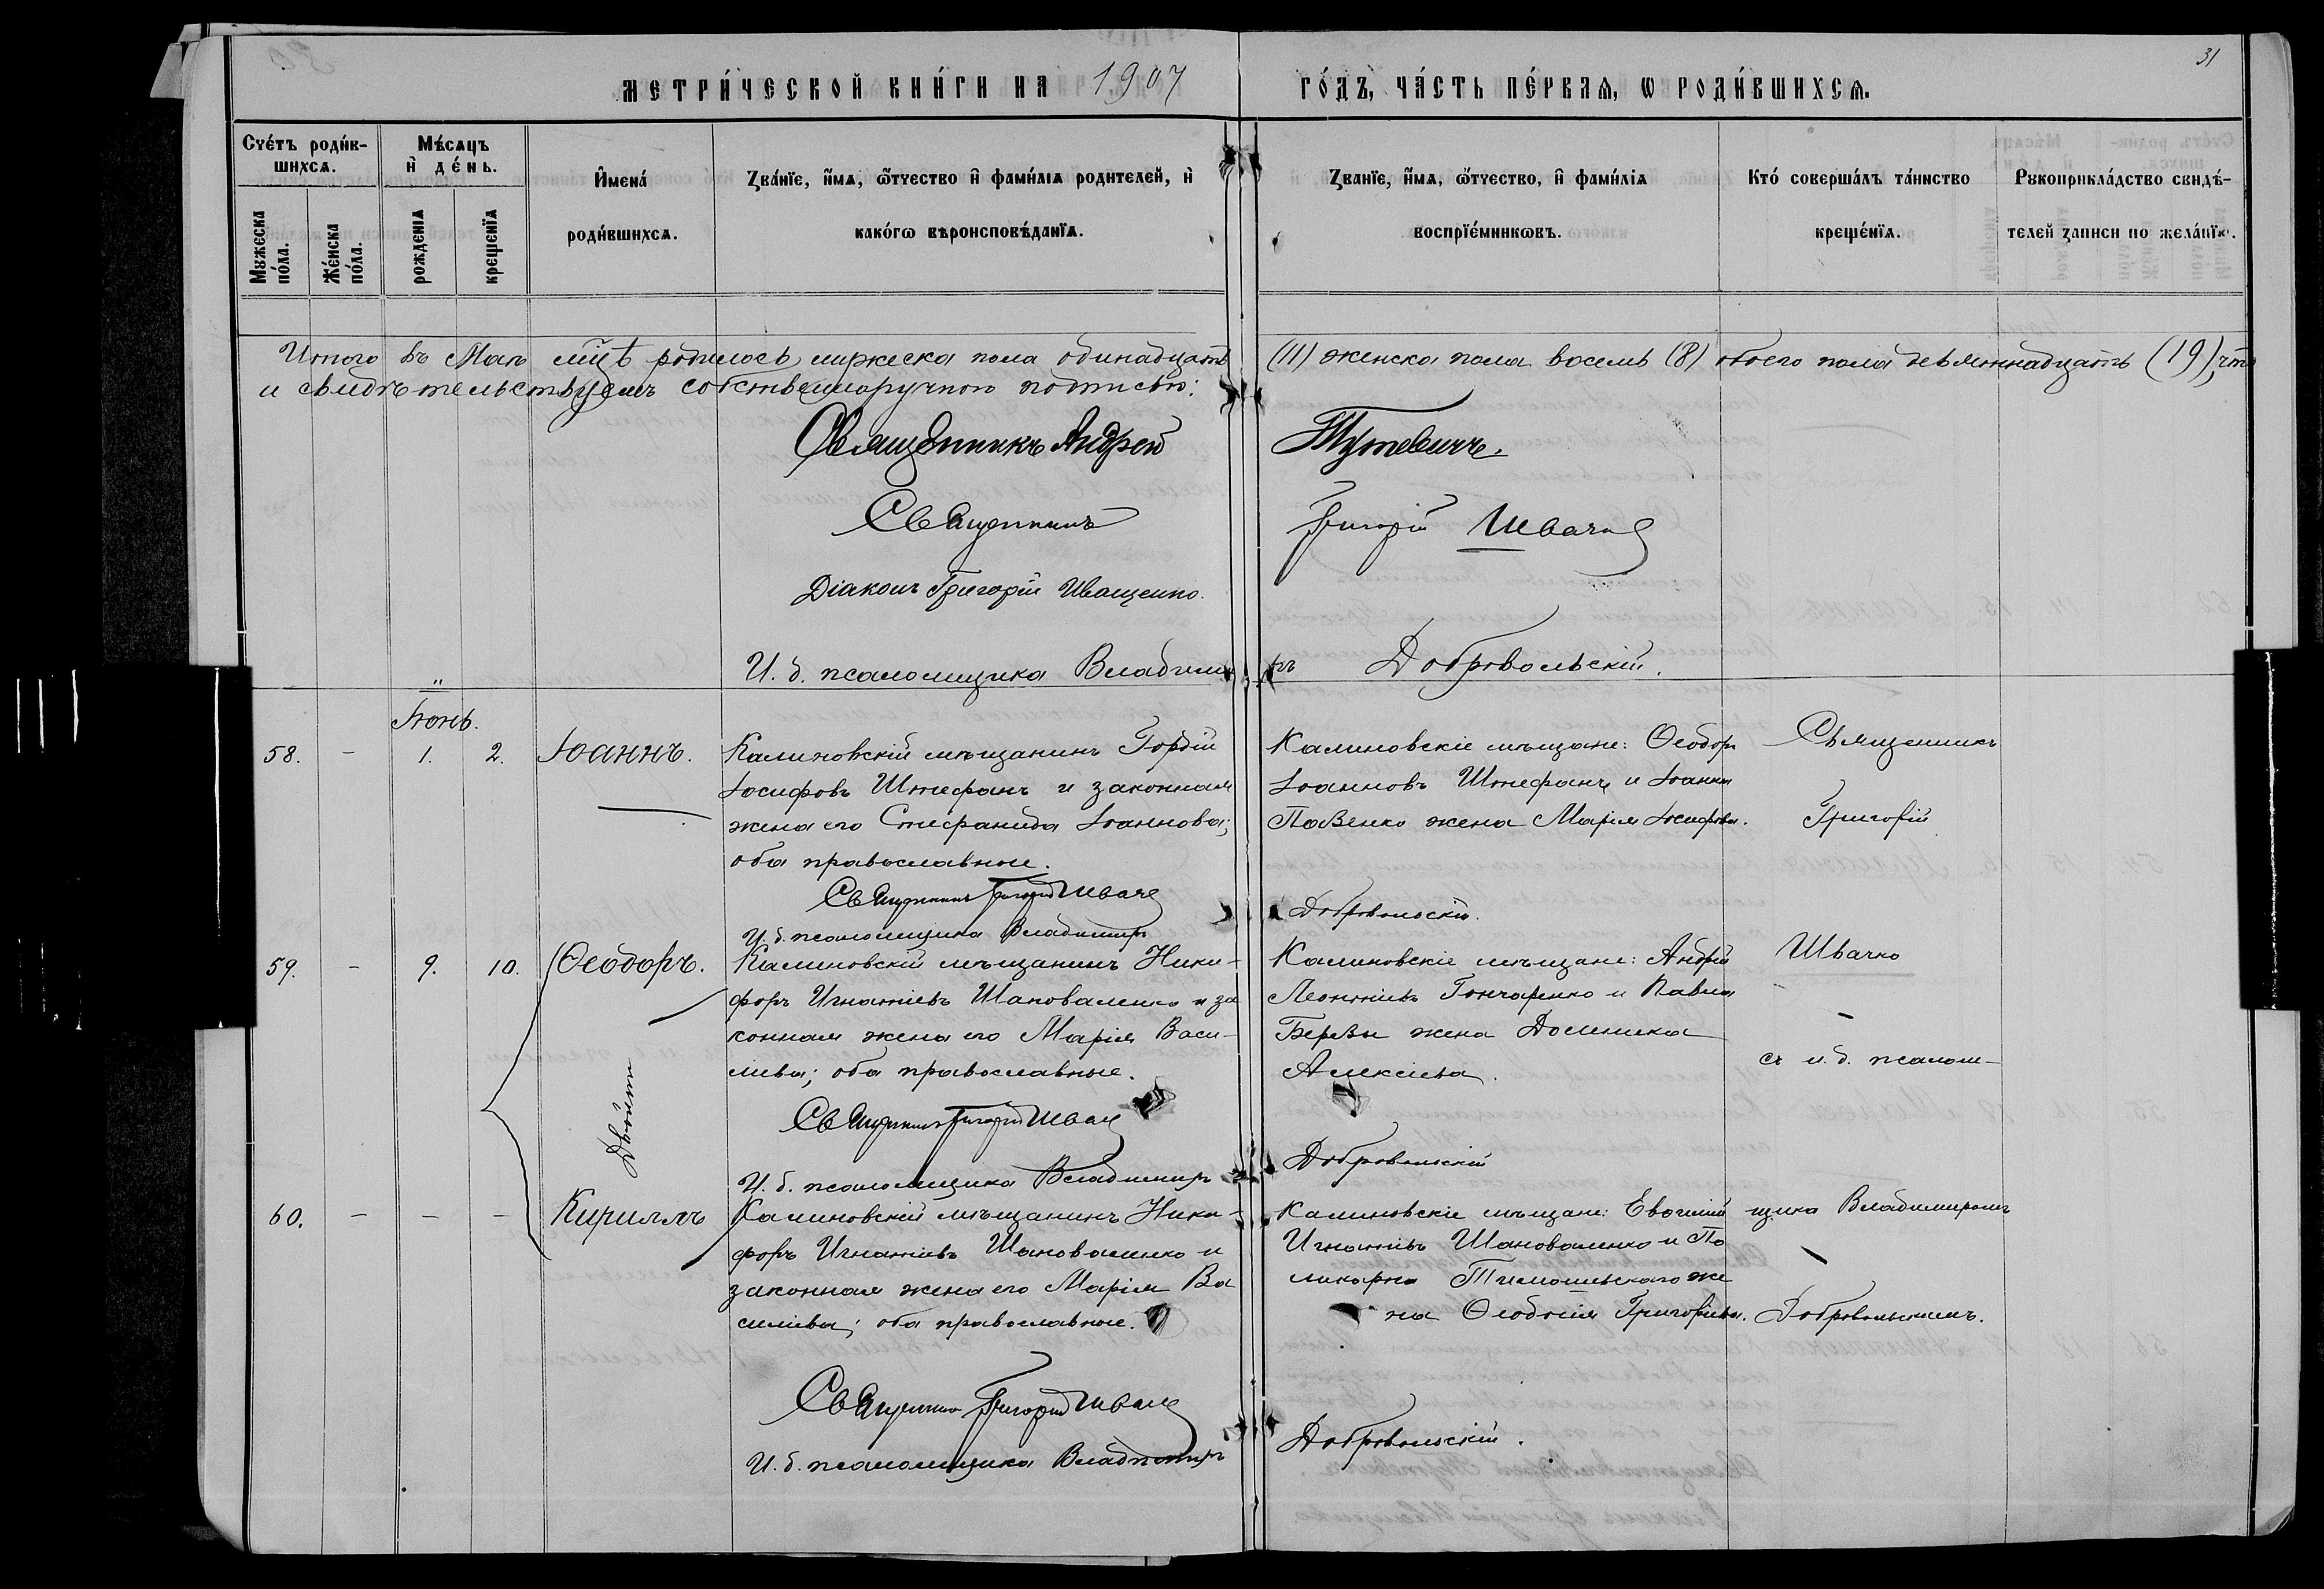 31
МЕТРИ́ЧЕСКОЙ КНИ́ГИ НА 1907 ГО́ДЪ, ЧА́СТЬ ПЕ́РВАѦ, Ѡ РОДИ́ВШИХСѦ.
Сче́тъ роди́в-
шихсѧ.
Мꙋжеска по́ла.
Же́нска по́ла.
Мѣ́сѧцъ
и҆ де́нь.
рожденїѧ
крещенїѧ
И҆мена́
роди́вшихсѧ.
Зва́нїе, и҆́мѧ, ѻ҆́тчество и҆ фами́лїѧ родителей, и҆
како́гѡ вѣроисповѣ́данїѧ.
Званїе, и҆́мѧ, ѻ҆́тчество, и҆ фами́лїѧ
воспрїе́мникѡвъ.
Кто́ соверша́лъ та́инство
креще́нїѧ.
Рꙋкоприкла́дство свидѣ́-
телей записи по жела́нїю.
Итого въ Маѣ м҃цѣ родилось мужеска пола одинадцать (11) женска пола восемь (8) обоего пола девятнадцать (19), что
и свидѣтельствуемъ собственноручною подписью:
Священникъ Андрей Тутевичъ.
Священникъ Григорій Швачко
Діаконъ Григорій Иващенко.
И. д. псаломщика Владиміръ Добровольскій.
Іюнь.
58. - 1. 2. Іоаннъ.
Калиновскій мѣщанинъ Гордій
Іосифовъ Штефанъ и законная
жена его Стефанида Іоаннова;
оба православные.
Калиновскіе мѣщане: Ѳеодоръ
Іоанновъ Штефанъ и Іоанна
жена Марія Іосифова.
Священникъ
Григорій
Священникъ Григорій Швачко
И. д. псаломщика Владиміръ Добровольскій.
59. - 9. 10. Ѳеодоръ.
Двойни
Калиновскій мѣщанинъ Ники-
форъ Игнатіевъ Шаповаленко и за
конная жена его Марія Васи-
лиева; оба православные.
Калиновскіе мѣщане: Андрей
Леонтіевъ Гончаренко и Павла
Березы жена Домника
Алексіева.
Швачко
съ и. д. псалом-
Священникъ Григорій Швачко
И. д. псаломщика Владиміръ Добровольскій
60. - - - Кириллъ
Калиновскій мѣщанинъ Ники-
форъ Игнатіевъ Шаповаленко и
законная жена его Марія Ва
силіева; оба православные.
Калиновскіе мѣщане: Евѳимій
Игнатіевъ Шаповаленко и По
ликарпа же
на Ѳеодосія Григоріева.
щика Владиміромъ
Добровольскимъ.
Священникъ Григорій Швачко
И. д. псаломщика Владиміръ Добровольскій.